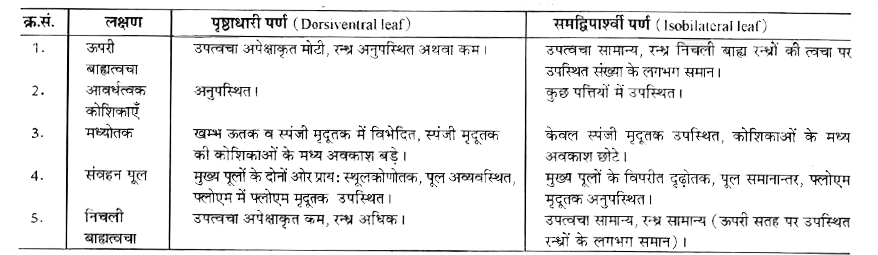 क्र.सं. लक्षण पृष्ठाधारी पर्ण (Dorsiventral leaf) समद्विपार्श्वी पर्ण (Isobilateral leaf)
1. ऊपरी उपत्वचा अपेक्षाकृत मोटी, रन्ध्र अनुपस्थित अथवा कम। उपत्वचा सामान्य, रन्ध्र निचली बाह्य रन्ध्रों की त्वचा पर
बाह्यत्वचा उपस्थित संख्या के लगभग समान।
2. आवर्धत्वक अनुपस्थित। कुछ पत्तियों में उपस्थित।
कोशिकाएँ
3. मध्योतक खम्भ ऊतक व स्पंजी मृदूतक में विभेदित, स्पंजी मृदूतक केवल स्पंजी मृदूतक उपस्थित, कोशिकाओं के मध्य
की कोशिकाओं के मध्य अवकाश बड़े। अवकाश छोटे।
4. संवहन पूल मुख्य पूलों के दोनों ओर प्राय: स्थूलकोणोतक, पूल अव्यवस्थित, मुख्य पूलों के विपरीत दृढ़ोतक, पूल समानान्तर, फ्लोएम
फ्लोएम में फ्लोएम मृदूतक उपस्थित। मृदूतक अनुपस्थित।
5. निचली उपत्वचा अपेक्षाकृत कम, रन्ध्र अधिक। उपत्वचा सामान्य, रन्ध्र सामान्य (ऊपरी सतह पर उपस्थित
बाह्यत्वचा रन्ध्रों के लगभग समान)।